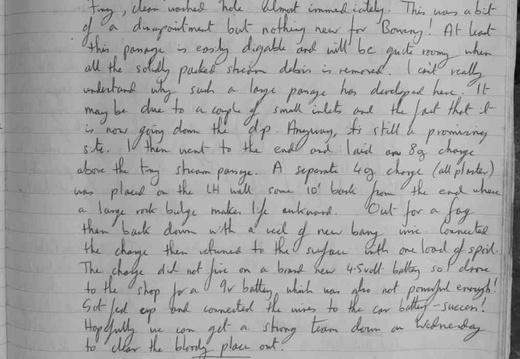 tiny, clean washed hole almost immediately. This was a bit
of a disappointment but nothing new for 'Bowery! At least
this passage is easily digable and will be quite roomy when
all the solidly packed stream debris is removed. I can't really
understand why such a large passage has developed here. It
may be due to a couple of small inlets and the fact that it
is now going down the dip. Anyway, its still a promising
site. I then went to the end and laid an 8g charge
above the tiny stream passage. A separate 40g charge (all plaster)
was placed on the LH wall some 10' back from the end where
a large rock bulge makes life awkward. Out for a fag
then back down with a reel of new bang wire. Connected
the charge then returned to the surface with one load of spoil.
The charge did not fire on a brand new 4.5volt battery so I drove
to the shop for a 9v battery which was also not powerful enough!
Got fed up and connected the wires to the car battery - success!
Hopefully we can get a strong team down on Wednesday
to clear the bloody place out.